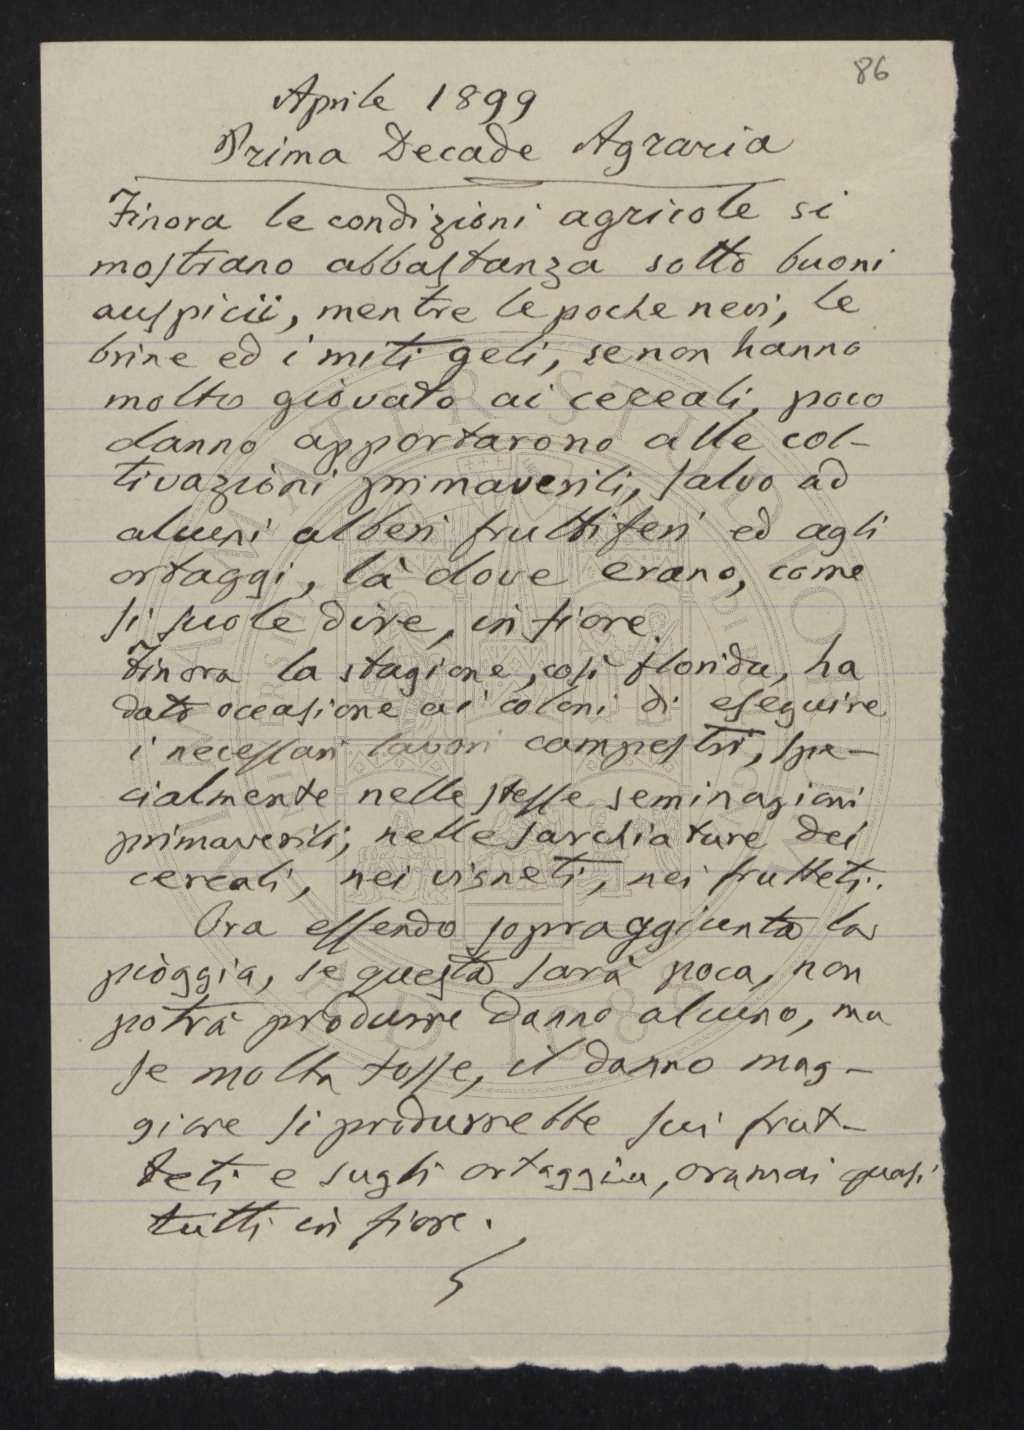 86
Aprile 1899
Prima Decade Agraria
Finora le condizioni agricole si
mostrano abbastanza sotto buoni
auspicii, mentre le poche nevi, le
brine ed i miti geli, se non hanno
molto giovato ai cereali, poco
danno apportarono alle col-
tivazioni primaverili, salvo ad
alcuni alberi fruttiferi ed agli
ortaggi, là dove erano, come
si suole dire, in fiore.
Finora la stagione, così florida, ha
dato occasione ai coloni di eseguire
i necessari lavori campestri, spe-
cialmente nelle stesse seminazioni
primaverili; nelle sarchiature dei
cereali, nei vigneti, nei frutteti.
Ora essendo sopraggiunta la
pioggia, se questa sarà poca, non
potrà produrre danno alcuno, ma
se molta fosse, il danno mag-
giore si produrrebbe sui frut-
teti e sugli ortaggia, oramai quasi
tutti in fiore.
ALMA MATER STUDIORUM